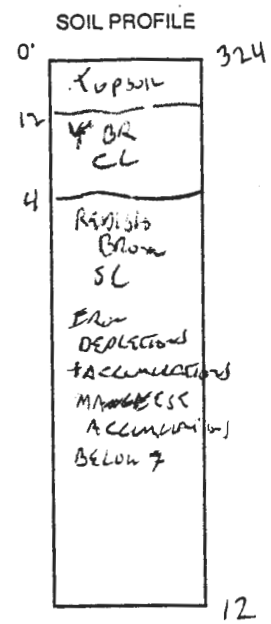 SOIL PROFILE
0' 324
Topsoil
12
Y BR
CL
4
REDDISH
BROWN
SL
IRON
DEPLETIONS
+ ACCUMULATIONS
MANGANESE
ACCUMULATIONS
BELOW 7
12